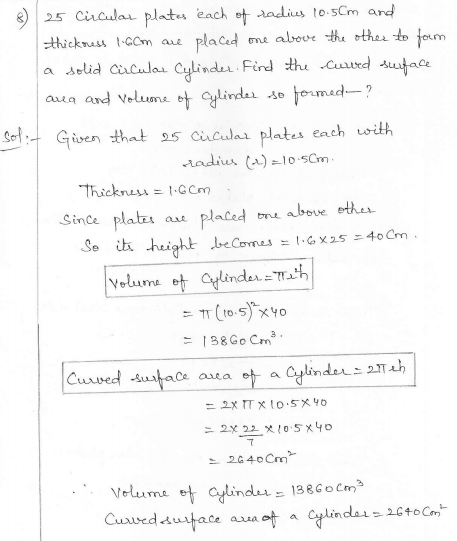 8) 25 Circular plates each of radius 10.5Cm and
thickness 1.6Cm are placed one above the other to form
a solid Circular Cylinder. Find the curved surface
area and Volume of Cylinder so formed—?
Sol:- Given that 25 Circular plates each with
radius (r) = 10.5Cm.
Thickness = 1.6Cm.
Since plates are placed one above other
So its height becomes = 1.6 X 25 = 40Cm.
Volume of Cylinder = πr²h
= π(10.5)² X 40
= 13860 Cm³.
Curved surface area of a Cylinder = 2πrh
= 2 X π X 10.5 X 40
= 2 X 22/7 X 10.5 X 40
= 2640 Cm²
∴ Volume of Cylinder = 13860 Cm³
Curved surface area of a Cylinder = 2640 Cm²